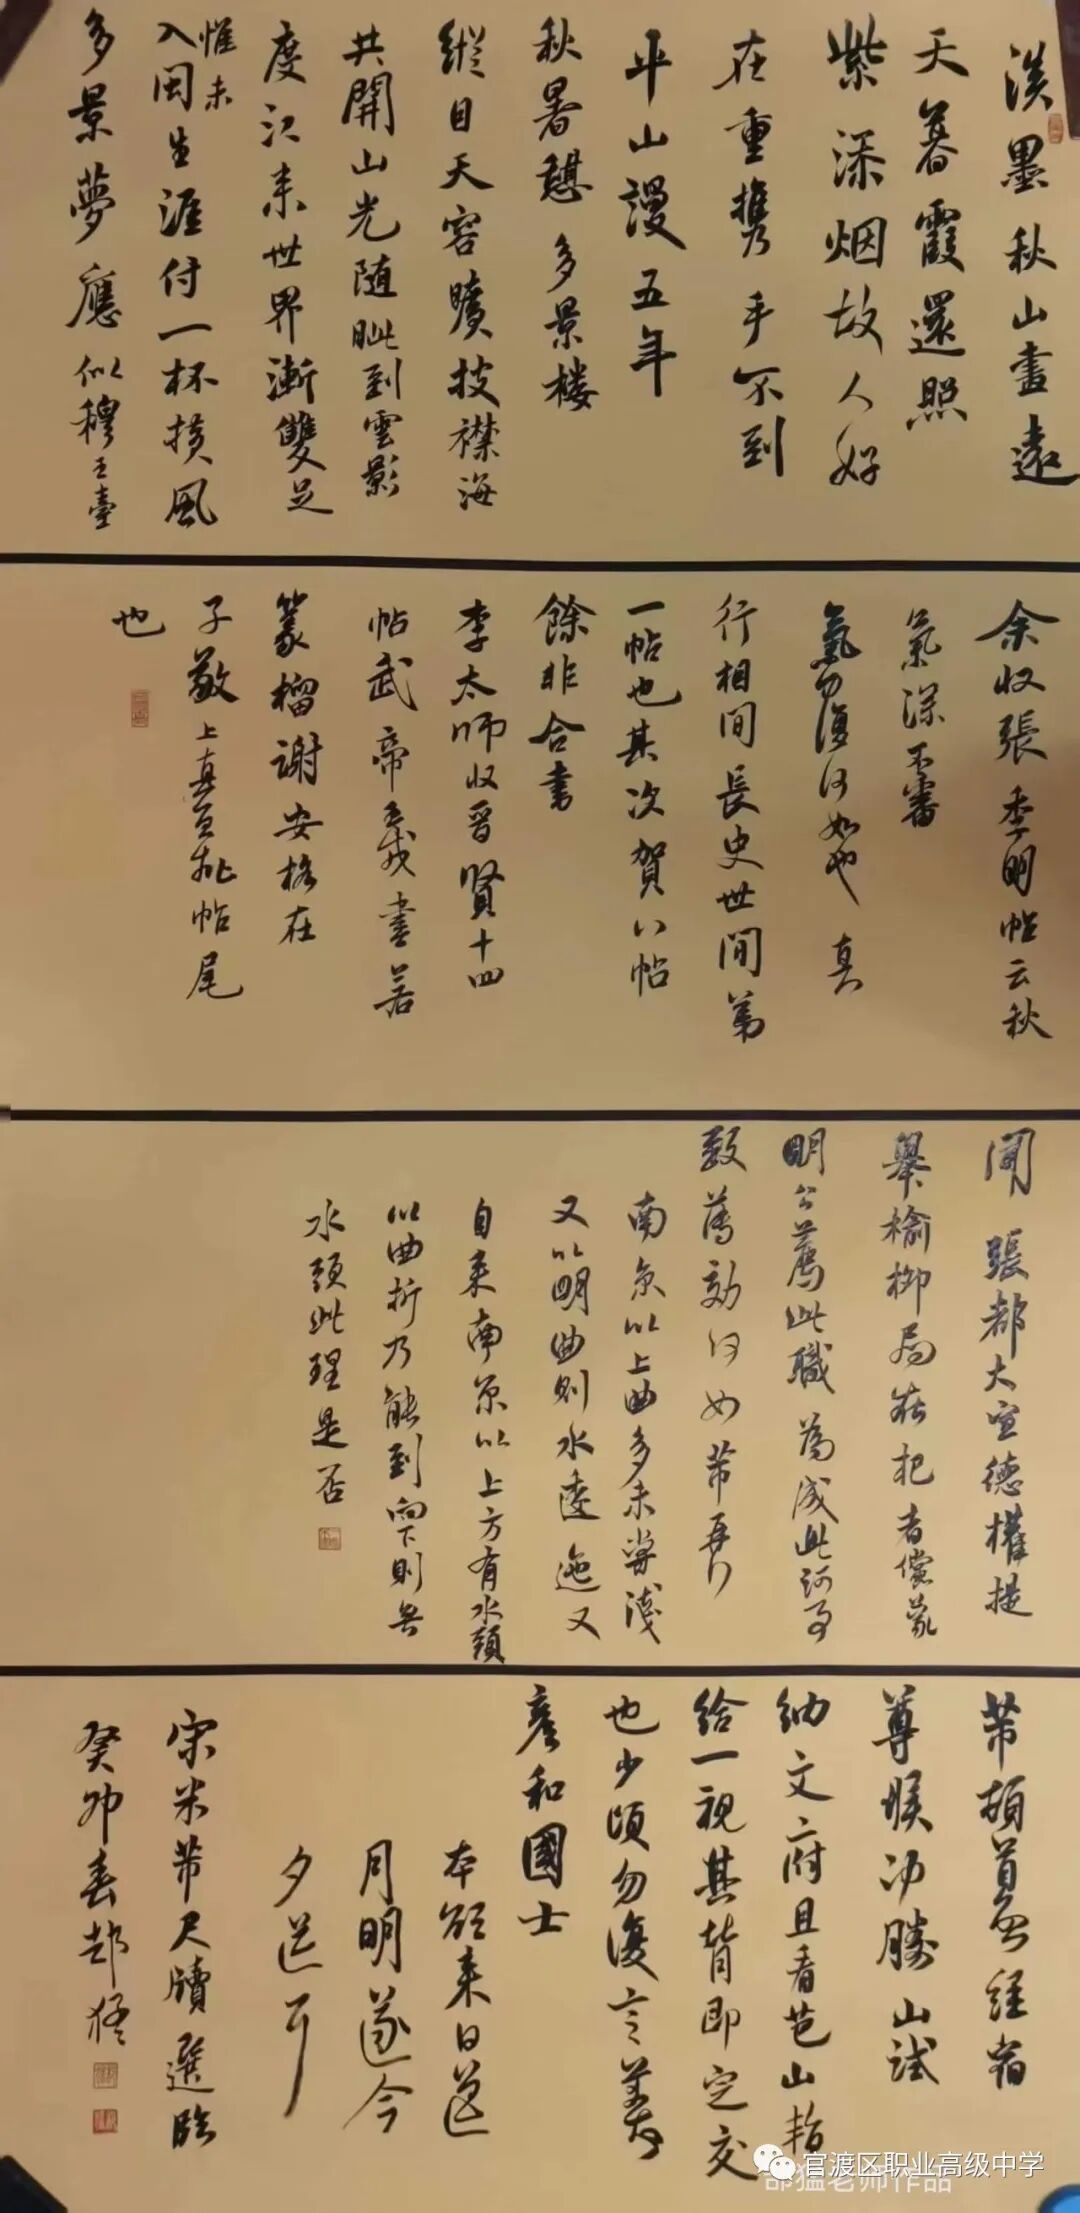 淡墨秋山畫遠
天暮霞還照
紫添烟故人好
在重携手不到
平山謾五年
秋暑憇多景楼
縱目天容曠披襟海
共開山光随眦到雲影
度江来世界漸雙足
惟未
入閩生涯付一杯横風
多景夢應似穆王臺
余收張季明帖云秋
氣深不審
氣力復何如也真
行相間長史世間第
一帖也其次賀八帖
餘非合書
李太師收晋賢十四
帖武帝王戎書若
篆榴謝安格在
子敬上真宜批帖尾
也
聞張都大宣德權提
舉榆柳局在杞者儻蒙
明公薦此職為成此河事
致薦効何如芾再行
南京以上曲多未嘗淺
又以明曲則水逶迤又
自来南京以上方有水頭
以曲折乃能到向下則無
水頭此理是否
芾頓首再啓經宿
尊候冲勝山試
納文府且看芭山暫
給一視其背即定交
也少頃勿復言芾
彦和國士
本欲来日送
月明遂今
夕送耳
宋米芾尺牘選臨
癸卯春郜猛
官渡区职业高级中学
郜猛老师作品